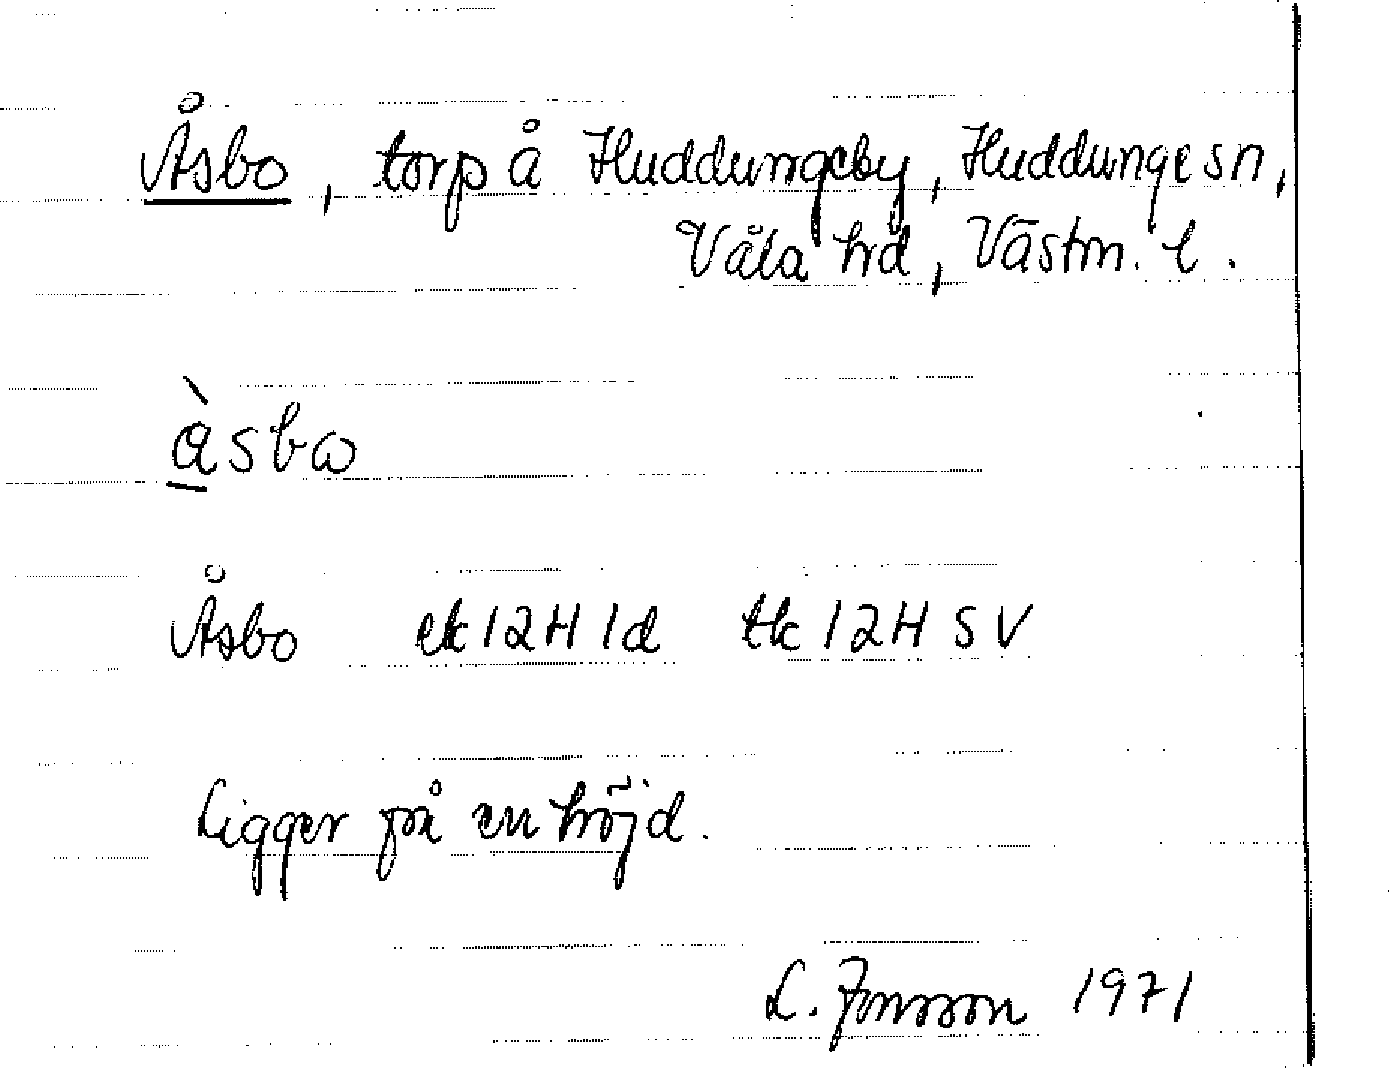 Åsbo, torp å Huddungeby, Huddunge sn,
Våla hd, Västm. l.
à̱sbω
Åsbo ek 12H 1d tk 12H SV
Ligger på en höjd.
L. Jonsson 1971